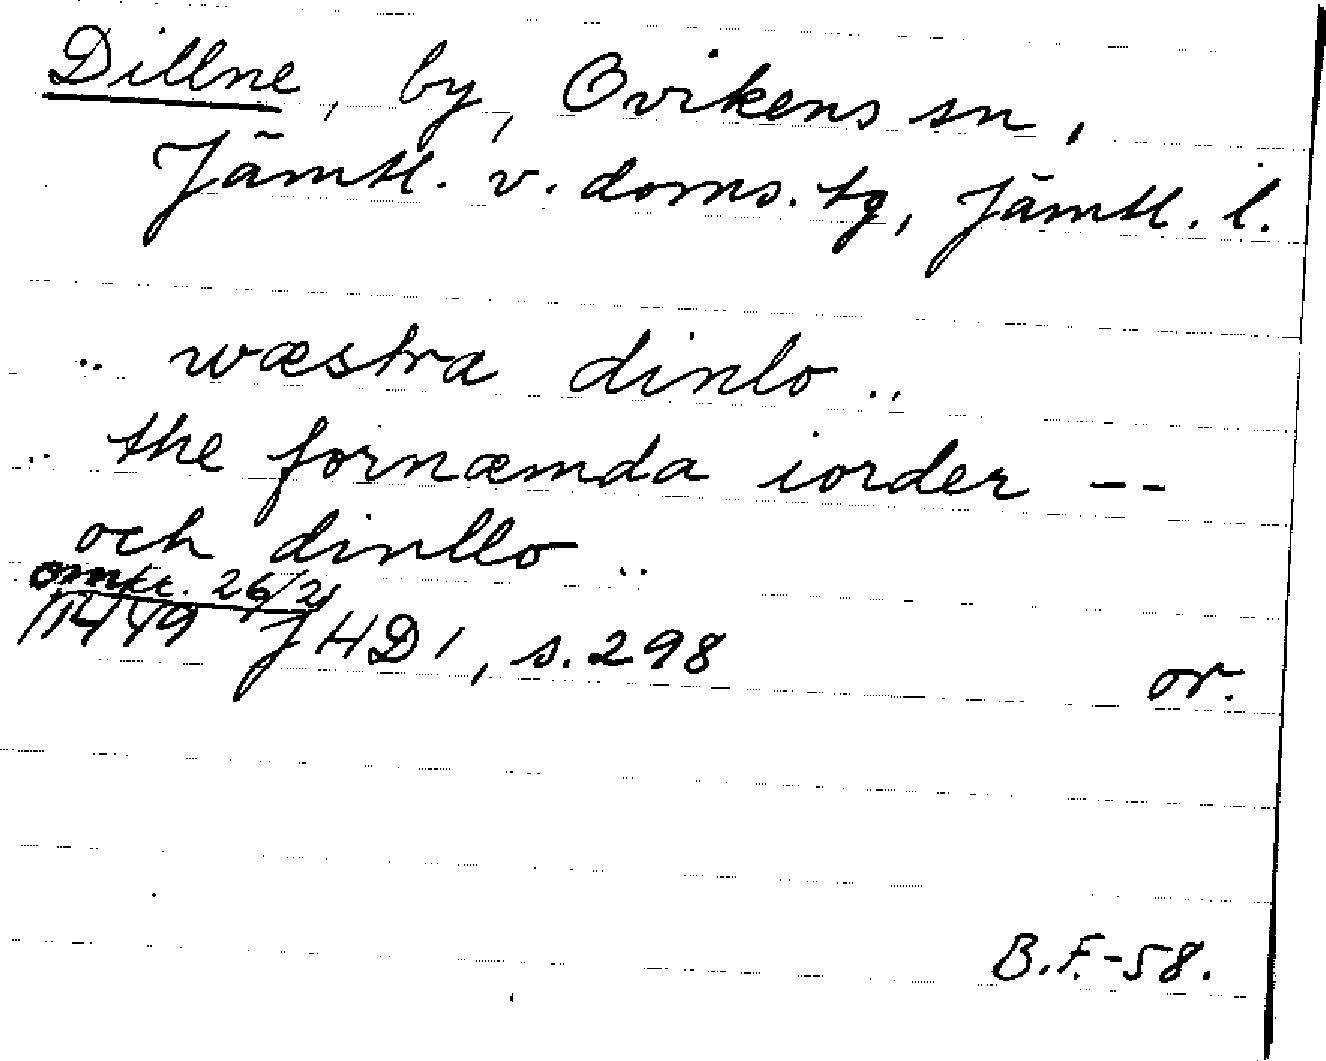 Dillne, by, Ovikens sn,
Jämtl. v. doms. tg, Jämtl. l.
.. wæstra dinlo ..
.. the fornæmda iorder --
och dinllo ..
omkr. 26/2
1449 JHD 1, s. 298
or.
B.F.-58.